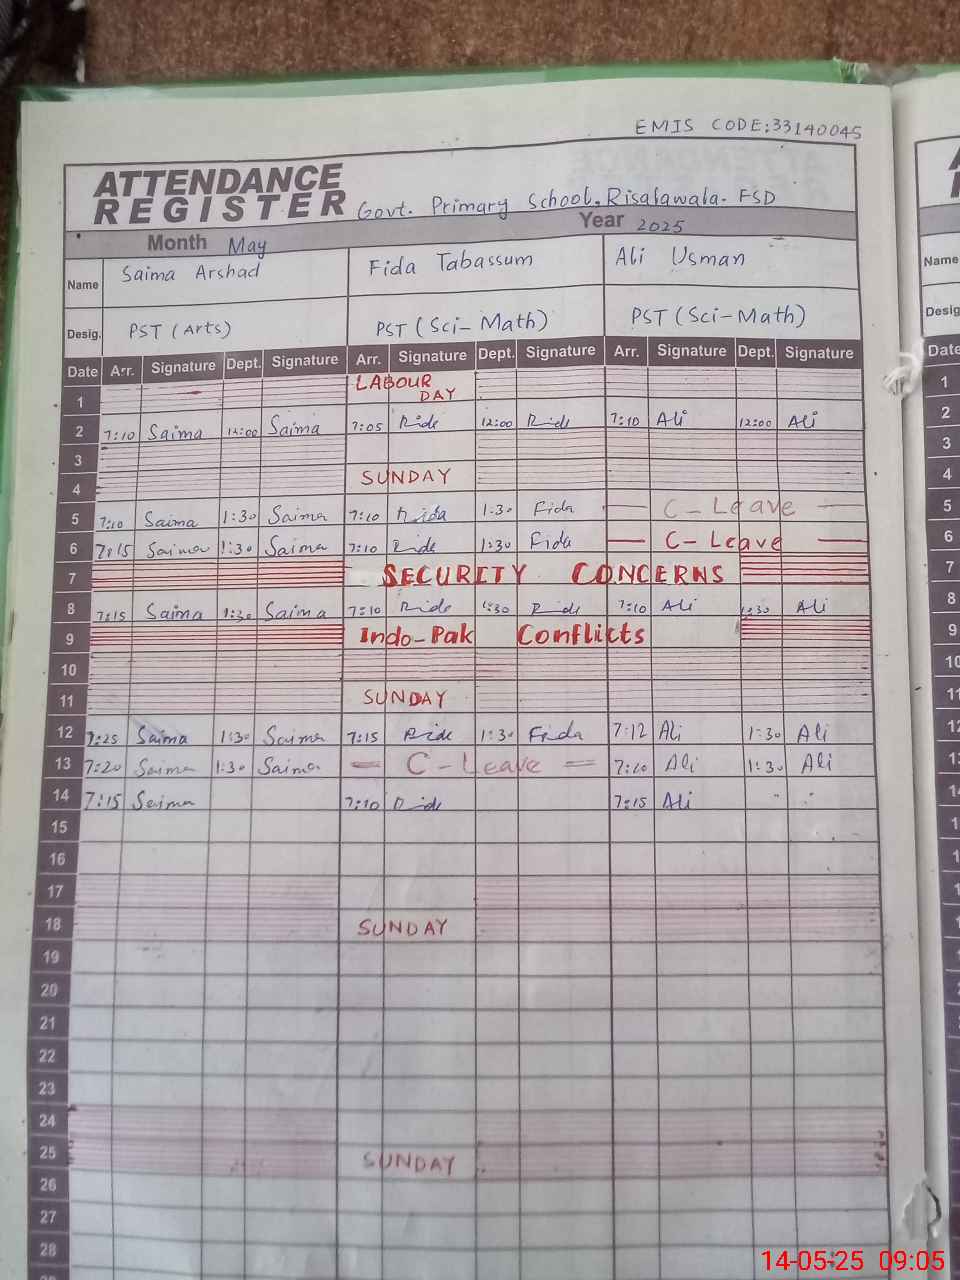 EMIS CODE:33140045
ATTENDANCE
REGISTER Govt. Primary School, Risalawala. FSD
Month May Year 2025
Name Saima Arshad Fida Tabassum Ali Usman Name
Desig. PST (Arts) PST (Sci-Math) PST (Sci-Math) Desig
Date Arr. Signature Dept. Signature Arr. Signature Dept. Signature Arr. Signature Dept. Signature Date
1 LABOUR DAY 1
2 7:10 Saima 12:00 Saima 7:05 12:00 7:10 Ali 12:00 Ali 2
3 3
4 SUNDAY 4
5 7:10 Saima 1:30 Saima 7:10 Fida 1:30 Fida C-Leave 5
6 7:15 Saima 1:30 Saima 7:10 1:30 Fida C-Leave 6
7 SECURITY CONCERNS 7
8 7:15 Saima 1:30 Saima 7:10 1:30 7:10 Ali 1:30 Ali 8
9 Indo-Pak Conflicts 9
10 10
11 SUNDAY 11
12 7:25 Saima 1:30 Saima 7:15 1:30 Fida 7:12 Ali 1:30 Ali 12
13 7:20 Saima 1:30 Saima C-Leave Ali 1:30 Ali
14 7:15 Saima 7:10 7:15 Ali
15
16
17
18 SUNDAY
19
20
21
22
23
24
25 SUNDAY
26
27
28
14-05-25 09:05